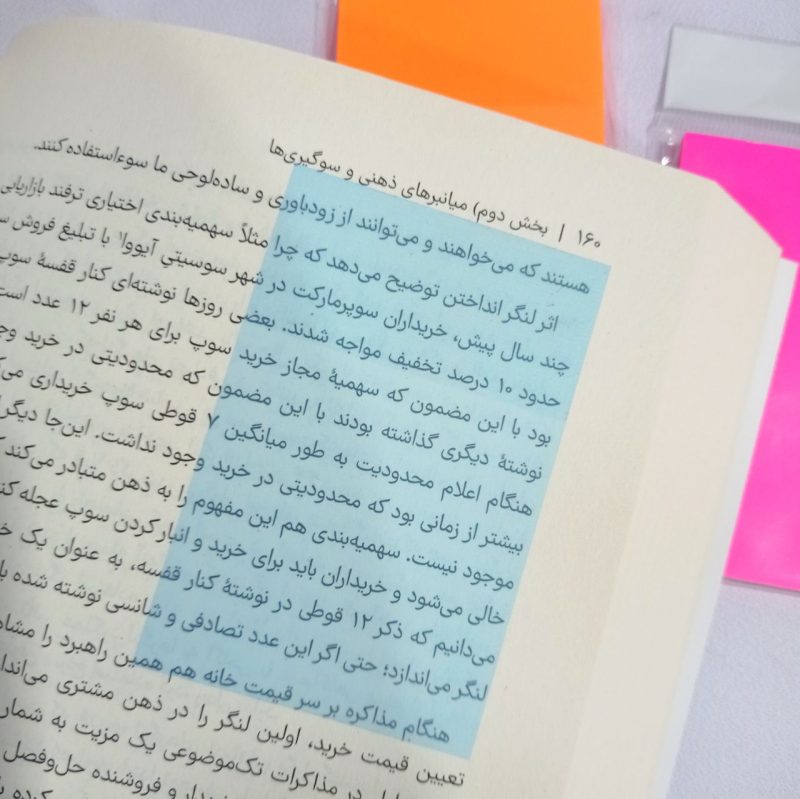 ۱۶۰ | بخش دوم) میانبرهای ذهنی و سوگیری‌ها
هستند که می‌خواهند و می‌توانند از زودباوری و ساده‌لوحی ما سوءاستفاده کنند.
اثر لنگر انداختن توضیح می‌دهد که چرا مثلاً سهمیه‌بندی اختیاری ترفند بازاریابی
چند سال پیش، خریداران سوپرمارکت در شهر سوسیتیِ آیووا۱ با تبلیغ فروش
حدود ۱۰ درصد تخفیف مواجه شدند. بعضی روزها نوشته‌ای کنار قفسهٔ سوپ
بود با این مضمون که سهمیهٔ مجاز خرید سوپ برای هر نفر ۱۲ عدد است
نوشتهٔ دیگری گذاشته بودند با این مضمون که محدودیتی در خرید
هنگام اعلام محدودیت به طور میانگین ۷ قوطی سوپ خریداری
بیشتر از زمانی بود که محدودیتی در خرید وجود نداشت. این‌جا دیگر
موجود نیست. سهمیه‌بندی هم این مفهوم را به ذهن متبادر می‌کند
خالی می‌شود و خریداران باید برای خرید و انبار کردن سوپ عجله
می‌دانیم که ذکر ۱۲ قوطی در نوشتهٔ کنار قفسه، به عنوان یک
لنگر می‌اندازد؛ حتی اگر این عدد تصادفی و شانسی نوشته شده
هنگام مذاکره بر سر قیمت خانه هم همین راهبرد را
تعیین قیمت خرید، اولین لنگر را در ذهن مشتری
در مذاکرات تک‌موضوعی یک مزیت به شمار
و فروشنده حل‌وفصل